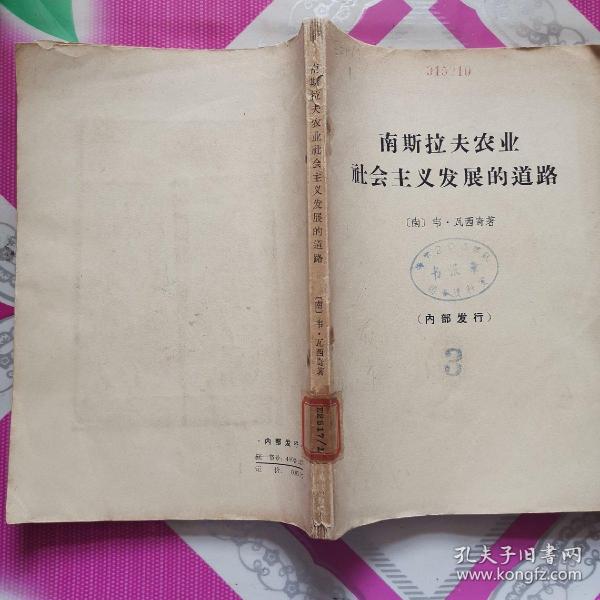 315210
南斯拉夫农业
社会主义发展的道路
〔南〕韦·瓦西奇著
书报章
（内部发行）
3
南斯拉夫农业社会主义发展的道路
〔南〕韦·瓦西奇著
内部发行
孔夫子旧书网
www.kongfz.com